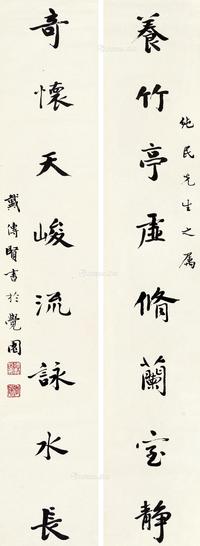 純民先生之属
養竹亭虛脩蘭室静
奇懷天峻流詠水長
戴傳賢書於覺園